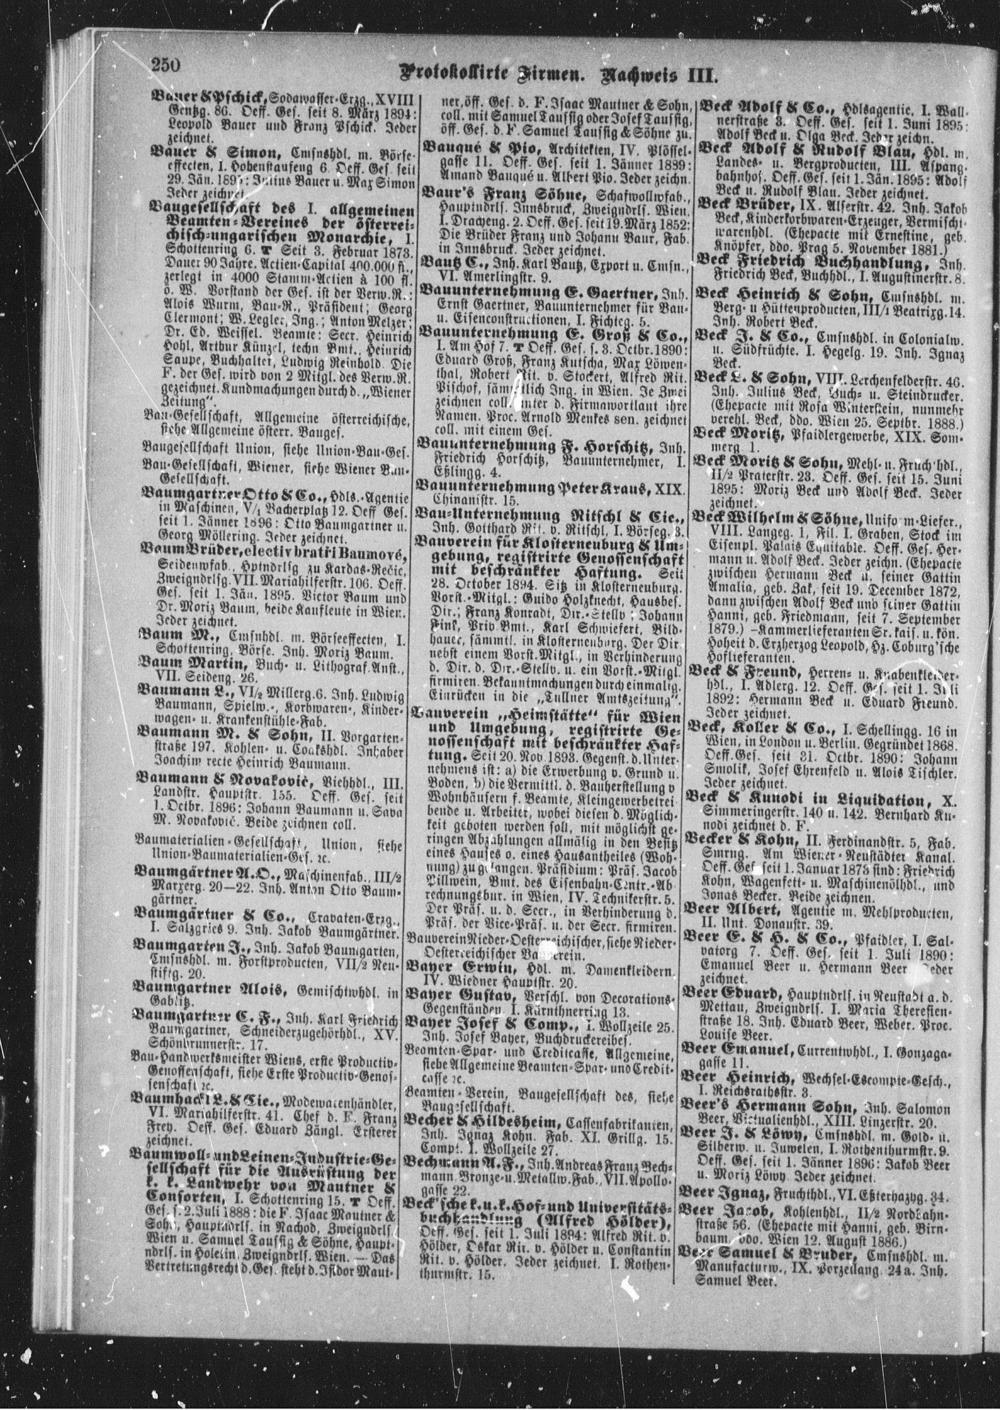 250
Protokollirte Firmen. Nachweis III.
Bauer & Pschick, Sodawasser-Erzg., XVIII
Gentzg. 86. Oeff. Ges. seit 8. März 1894:
Leopold Bauer und Franz Pschick. Jeder
zeichnet.
Bauer & Simon, Cmsnshdl. m. Börse-
effecten, I. Hohenstaufeng 6. Oeff. Ges seit
29. Jän. Julius Bauer u. Max Simon
Jeder zeichnet.
Baugesellschaft des I. allgemeinen
Beamten-Vereines der österrei-
chisch-ungarischen Monarchie, I.
Schottenring 6. T Seit 3. Februar 1873.
Dauer 90 Jahre. Actien-Capital 400.000 fl.,
zerlegt in 4000 Stamm-Actien à 100 fl.
ö. W. Vorstand der Ges. ist der Verw.R.:
Alois Wurm, Bau-R., Präsident; Georg
Clermont; W. Legler, Ing.; Anton Melzer;
Dr. Ed. Weissel. Beamte: Secr. Heinrich
Hohl, Arthur Künzel, techn Bmt., Heinrich
Saupe, Buchhalter, Ludwig Reinhold. Die
F. der Ges. wird von 2 Mitgl. des Verw.R.
gezeichnet. Kundmachungen durch d. „Wiener
Zeitung“.
Bau-Gesellschaft, Allgemeine österreichische,
siehe Allgemeine österr. Bauges.
Baugesellschaft Union, siehe Union-Bau-Ges.
Bau-Gesellschaft, Wiener, siehe Wiener Bau-
Gesellschaft.
Baumgartner Otto & Co., Hdls.-Agentie
in Maschinen, V/1 Bacherplatz 12. Oeff Ges.
seit 1. Jänner 1896: Otto Baumgartner u.
Georg Möllering. Jeder zeichnet.
Baum Brüder, electiv bratři Baumové,
Seidenwfab., Hptndrlsg zu Kardas-Rečic,
Zweigndrlsg. VII. Mariahilferstr. 106. Oeff.
Ges. seit 1. Jän. 1895. Victor Baum und
Dr. Moriz Baum, beide Kaufleute in Wien.
Jeder zeichnet.
Baum M., Cmsnhdl. m. Börseeffecten, I.
Schottenring, Börse. Inh. Moriz Baum.
Baum Martin, Buch- u. Lithograf. Anst.,
VII. Seideng. 26.
Baumann L., VI/2 Millerg. 6. Inh. Ludwig
Baumann, Spielw.-, Korbwaren-, Kinder-
wagen- u. Krankenstühle-Fab.
Baumann M. & Sohn, II. Vorgarten-
straße 197. Kohlen- u. Coakshdl. Inhaber
Joachim recte Heinrich Baumann.
Baumann & Novaković, Viehhdl., III.
Landstr. Hauptstr. 155. Oeff. Ges. seit
1. Octbr. 1896: Johann Baumann u. Sava
M. Novaković. Beide zeichnen coll.
Baumaterialien-Gesellschaft, Union, siehe
Union-Baumaterialien-Ges. ꝛc.
Baumgärtner A. O., Maschinenfab., III/2
Marxerg. 20—22. Inh. Anton Otto Baum-
gärtner.
Baumgärtner & Co., Cravaten-Erzg.,
I. Salzgries 9. Inh. Jakob Baumgärtner.
Baumgarten J., Inh. Jakob Baumgarten,
Cmsnshdl. m. Forstproducten, VII/2 Neu-
stiftg. 20.
Baumgartner Alois, Gemischtwhdl. in
Gablitz.
Baumgartner C. F., Inh. Karl Friedrich
Baumgartner, Schneiderzugehörhdl., XV.
Schönbrunnerstr. 17.
Bau-Handwerksmeister Wiens, erste Productiv-
Genossenschaft, siehe Erste Productiv-Genos-
senschaft ꝛc.
Baumhackl L. & Cie., Modewarenhändler,
VI. Mariahilferstr. 41. Chef d. F. Franz
Frey. Oeff. Ges. Eduard Zängl. Ersterer
zeichnet.
Baumwoll- und Leinen-Industrie-Ge-
sellschaft für die Ausrüstung der
k. k. Landwehr von Mautner &
Consorten, I. Schottenring 15. T Oeff.
Ges. s. 2. Juli 1888: die F. Isaac Mautner &
Sohn, Hauptndrls. in Nachod, Zweigndrls.
Wien u. Samuel Taussig & Söhne, Haupt-
ndrls. in Holeschin, Zweigndrls. Wien. — Das
Vertretungsrecht d. Ges. steht d. Isidor Maut-
ner, öff. Ges. d. F. Isaac Mautner & Sohn,
coll. mit Samuel Taussig oder Josef Taussig,
öff. Ges. d. F. Samuel Taussig & Söhne zu.
Bauqué & Pio, Architekten, IV. Plössel-
gasse 11. Oeff. Ges. seit 1. Jänner 1889:
Amand Bauqué u. Albert Pio. Jeder zeichn.
Baur's Franz Söhne, Schafwollwfab.,
Hauptndrls. Innsbruck, Zweigndrls. Wien,
I. Drachteng. 2. Oeff. Ges. seit 19. März 1852:
Die Brüder Franz und Johann Baur, Fab.
in Innsbruck. Jeder zeichnet.
Bautz C., Inh. Karl Bautz, Export u. Cmsn.,
VI. Amerlingstr. 9.
Bauunternehmung E. Gaertner, Inh.
Ernst Gaertner, Bauunternehmer für Bau-
u. Eisenconstructionen, I. Fichteg. 5.
Bauunternehmung E. Groß & Co.,
I. Am Hof 7. T Oeff. Ges. s. 3. Octbr. 1890:
Eduard Groß, Franz Kutscha, Max Löwen-
thal, Robert Rit. v. Stockert, Alfred Rit.
Pischof, sämmtlich Ing. in Wien. Je Zwei
zeichnen coll. unter d. Firmawortlaut ihre
Namen. Proc. Arnold Menkes sen. zeichnet
coll. mit einem Ges.
Bauunternehmung F. Horschitz, Inh.
Friedrich Horschitz, Bauunternehmer, I.
Eßlingg. 4.
Bauunternehmung Peter Kraus, XIX.
Chimanistr. 15.
Bau-Unternehmung Ritschl & Cie.,
Inh. Gotthard Rit. v. Ritschl, I. Börseg. 3.
Bauverein für Klosterneuburg & Um-
gebung, registrirte Genossenschaft
mit beschränkter Haftung. Seit
28. October 1894. Sitz in Klosterneuburg.
Vorst.-Mitgl.: Guido Holzknecht, Hausbes.
Dir.; Franz Konradt, Dir.-Stellv.; Johann
Fink, Priv. Bmt., Karl Schwiefert, Bild-
hauer, sämmtl. in Klosterneuburg. Der Dir.
nebst einem Vorst. Mitgl., in Verhinderung
d. Dir. d. Dir.-Stellv. u. ein Vorst.-Mitgl.
firmiren. Bekanntmachungen durch einmalig.
Einrücken in die „Tullner Amtszeitung“.
Bauverein „Heimstätte“ für Wien
und Umgebung, registrirte Ge-
nossenschaft mit beschränkter Haf-
tung. Seit 20. Nov. 1893. Gegenst. d. Unter-
nehmens ist: a) die Erwerbung v. Grund u.
Boden, b) die Vermittl. d. Bauherstellung v
Wohnhäusern f. Beamte, Kleingewerbetrei
bende u. Arbeiter, wobei diesen d. Möglich-
keit geboten werden soll, mit möglichst ge-
ringen Abzahlungen allmälig in den Besitz
eines Hauses o. eines Hausantheiles (Woh-
nung) zu gelangen. Präsidium: Präs. Jacob
Pillwein, Bmt. des Eisenbahn-Centr.-Ab
rechnungsbur. in Wien, IV. Technikerstr. 5.
Der Präs. u. d. Secr., in Verhinderung d.
Präs. der Vice-Präs. u. der Secr. firmiren.
Bauverein Nieder-Oesterreichischer, siehe Nieder-
Oesterreichischer Bauverein.
Bayer Erwin, Hdl. m. Damenkleidern,
IV. Wiedner Hauptstr. 20.
Bayer Gustav, Verschl. von Decorations-
Gegenständen, I. Kärnthnerring 13.
Bayer Josef & Comp., I. Wollzeile 25.
Inh. Josef Bayer, Buchdruckereibes.
Beamten-Spar- und Creditcasse, Allgemeine,
siehe Allgemeine Beamten-Spar- und Credit-
casse ꝛc.
Beamten-Verein, Baugesellschaft des, siehe
Baugesellschaft.
Becher & Hildesheim, Cassenfabrikanten,
Inh. Ignaz Kohn. Fab. XI. Grillg. 15.
Compt. I. Wollzeile 27.
Bechmann A. F., Inh. Andreas Franz Bech-
mann, Bronze- u. Metallw. Fab., VII. Apollo-
gasse 22.
Beck'sche k. u. k. Hof- und Universitäts-
buchhandlung (Alfred Hölder),
Oeff. Ges. seit 1. Juli 1894: Alfred Rit. v.
Hölder, Oskar Rit. v. Hölder u. Constantin
Rit. v. Hölder. Jeder zeichnet. I. Rothen-
thurmstr. 15.
Beck Adolf & Co., Hdlsagentie, I. Wall-
nerstraße 3. Oeff. Ges. seit 1. Juni 1895:
Adolf Beck u. Olga Beck. Jeder zeichn.
Beck Adolf & Rudolf Blau, Hdl. m.
Landes- u. Bergproducten, III. Aspang-
bahnhof. Oeff. Ges. seit 1. Jän. 1895: Adolf
Beck u. Rudolf Blau. Jeder zeichnet.
Beck Brüder, IX. Alserstr. 42. Inh. Jakob
Beck, Kinderkorbwaren-Erzeiger, Vermischt-
warenhdl. (Ehepacte mit Ernestine, geb.
Knöpfer, ddo. Prag 5. November 1881.)
Beck Friedrich Buchhandlung, Inh.
Friedrich Beck, Buchhdl., I. Augustinerstr. 8.
Beck Heinrich & Sohn, Cmsnshdl. m.
Berg- u Hüttenproducten, III/1 Beatrixg. 14.
Inh. Robert Beck.
Beck J. & Co., Cmsnshdl. in Colonialw.
u. Südfrüchte. I. Hegelg. 19. Inh. Ignaz
Beck.
Beck L. & Sohn, VIII. Lerchenfelderstr. 46.
Inh. Julius Beck, Buch- u. Steindrucker.
(Ehepacte mit Rosa Winterstein, nunmehr
verehl. Beck, ddo. Wien 25. Septbr. 1888.)
Beck Moritz, Pfaidlergewerbe, XIX. Som-
merg 1.
Beck Moritz & Sohn, Mehl- u. Fruchthdl.,
II/2 Praterstr. 23. Oeff. Ges. seit 15. Juni
1895: Moriz Beck und Adolf Beck. Jeder
zeichnet.
Beck Wilhelm & Söhne, Uniform-Liefer.,
VIII. Langeg. 1, Fil. I. Graben, Stock im
Eisenpl. Palais Equitable. Oeff. Ges. Her-
mann u. Adolf Beck. Jeder zeichn. (Ehepacte
zwischen Hermann Beck u. seiner Gattin
Amalia, geb. Zak, seit 19. December 1872,
dann zwischen Adolf Beck und seiner Gattin
Hanni, geb. Friedmann, seit 7. September
1879.) —Kammerlieferanten Sr. kais. u. kön.
Hoheit d. Erzherzog Leopold, Hz. Coburg'sche
Hoflieferanten.
Beck & Freund, Herren- u. Knabenkleider-
hdl., I. Adlerg. 12. Oeff. Ges. seit 1. Juli
1892: Hermann Beck u. Eduard Freund.
Jeder zeichnet.
Beck, Koller & Co., I. Schellingg. 16 in
Wien, in London u. Berlin. Gegründet 1868.
Oeff. Ges. seit 31. Octbr. 1890: Johann
Smolik, Josef Ehrenfeld u. Alois Tischler.
Jeder zeichnet.
Beck & Kunodi in Liquidation, X.
Simmeringerstr. 140 u. 142. Bernhard Ku-
nodi zeichnet d. F.
Becker & Kohn, II. Ferdinandstr. 5, Fab.
Smrng. Am Wiener-Neustädter Kanal.
Oeff. Ges seit 1. Januar 1873 sind: Friedrich
Kohn, Wagenfett- u. Maschinenölhdl., und
Jonas Becker. Beide zeichnen.
Beer Albert, Agentie m. Mehlproducten,
II. Unt. Donaustr. 39.
Beer E. & H. & Co., Pfaidler, I. Sal-
vatorg 7. Oeff. Ges. seit 1. Juli 1890:
Emanuel Beer u. Hermann Beer Jeder
zeichnet.
Beer Eduard, Hauptndrls. in Neustadt a. d.
Mettau, Zweigndrls. I. Maria Theresien-
straße 18. Inh. Eduard Beer, Weber. Proc.
Louise Beer.
Beer Emanuel, Currentwhdl., I. Gonzaga-
gasse 11.
Beer Heinrich, Wechsel-Escompte-Gesch.,
I. Reichsrathsstr. 3.
Beer's Hermann Sohn, Inh. Salomon
Beer, Virtualienhdl., XIII. Linzerstr. 20.
Beer J. & Löwy, Cmsnshdl. m. Gold- u.
Silberw. u. Juwelen, I. Rothenthurmstr. 9.
Oeff. Ges. seit 1. Jänner 1896: Jakob Beer
u. Moriz Löwy. Jeder zeichnet.
Beer Ignaz, Fruchthdl., VI. Esterhazyg. 34.
Beer Jacob, Kohlenhdl., II/2 Nordbahn-
straße 56. (Ehepacte mit Hanni, geb. Birn-
baum, ddo. Wien 12. August 1886.)
Beer Samuel & Bruder, Cmsnshdl. m.
Manufacturw., IX. Porzellang. 24a. Inh.
Samuel Beer.